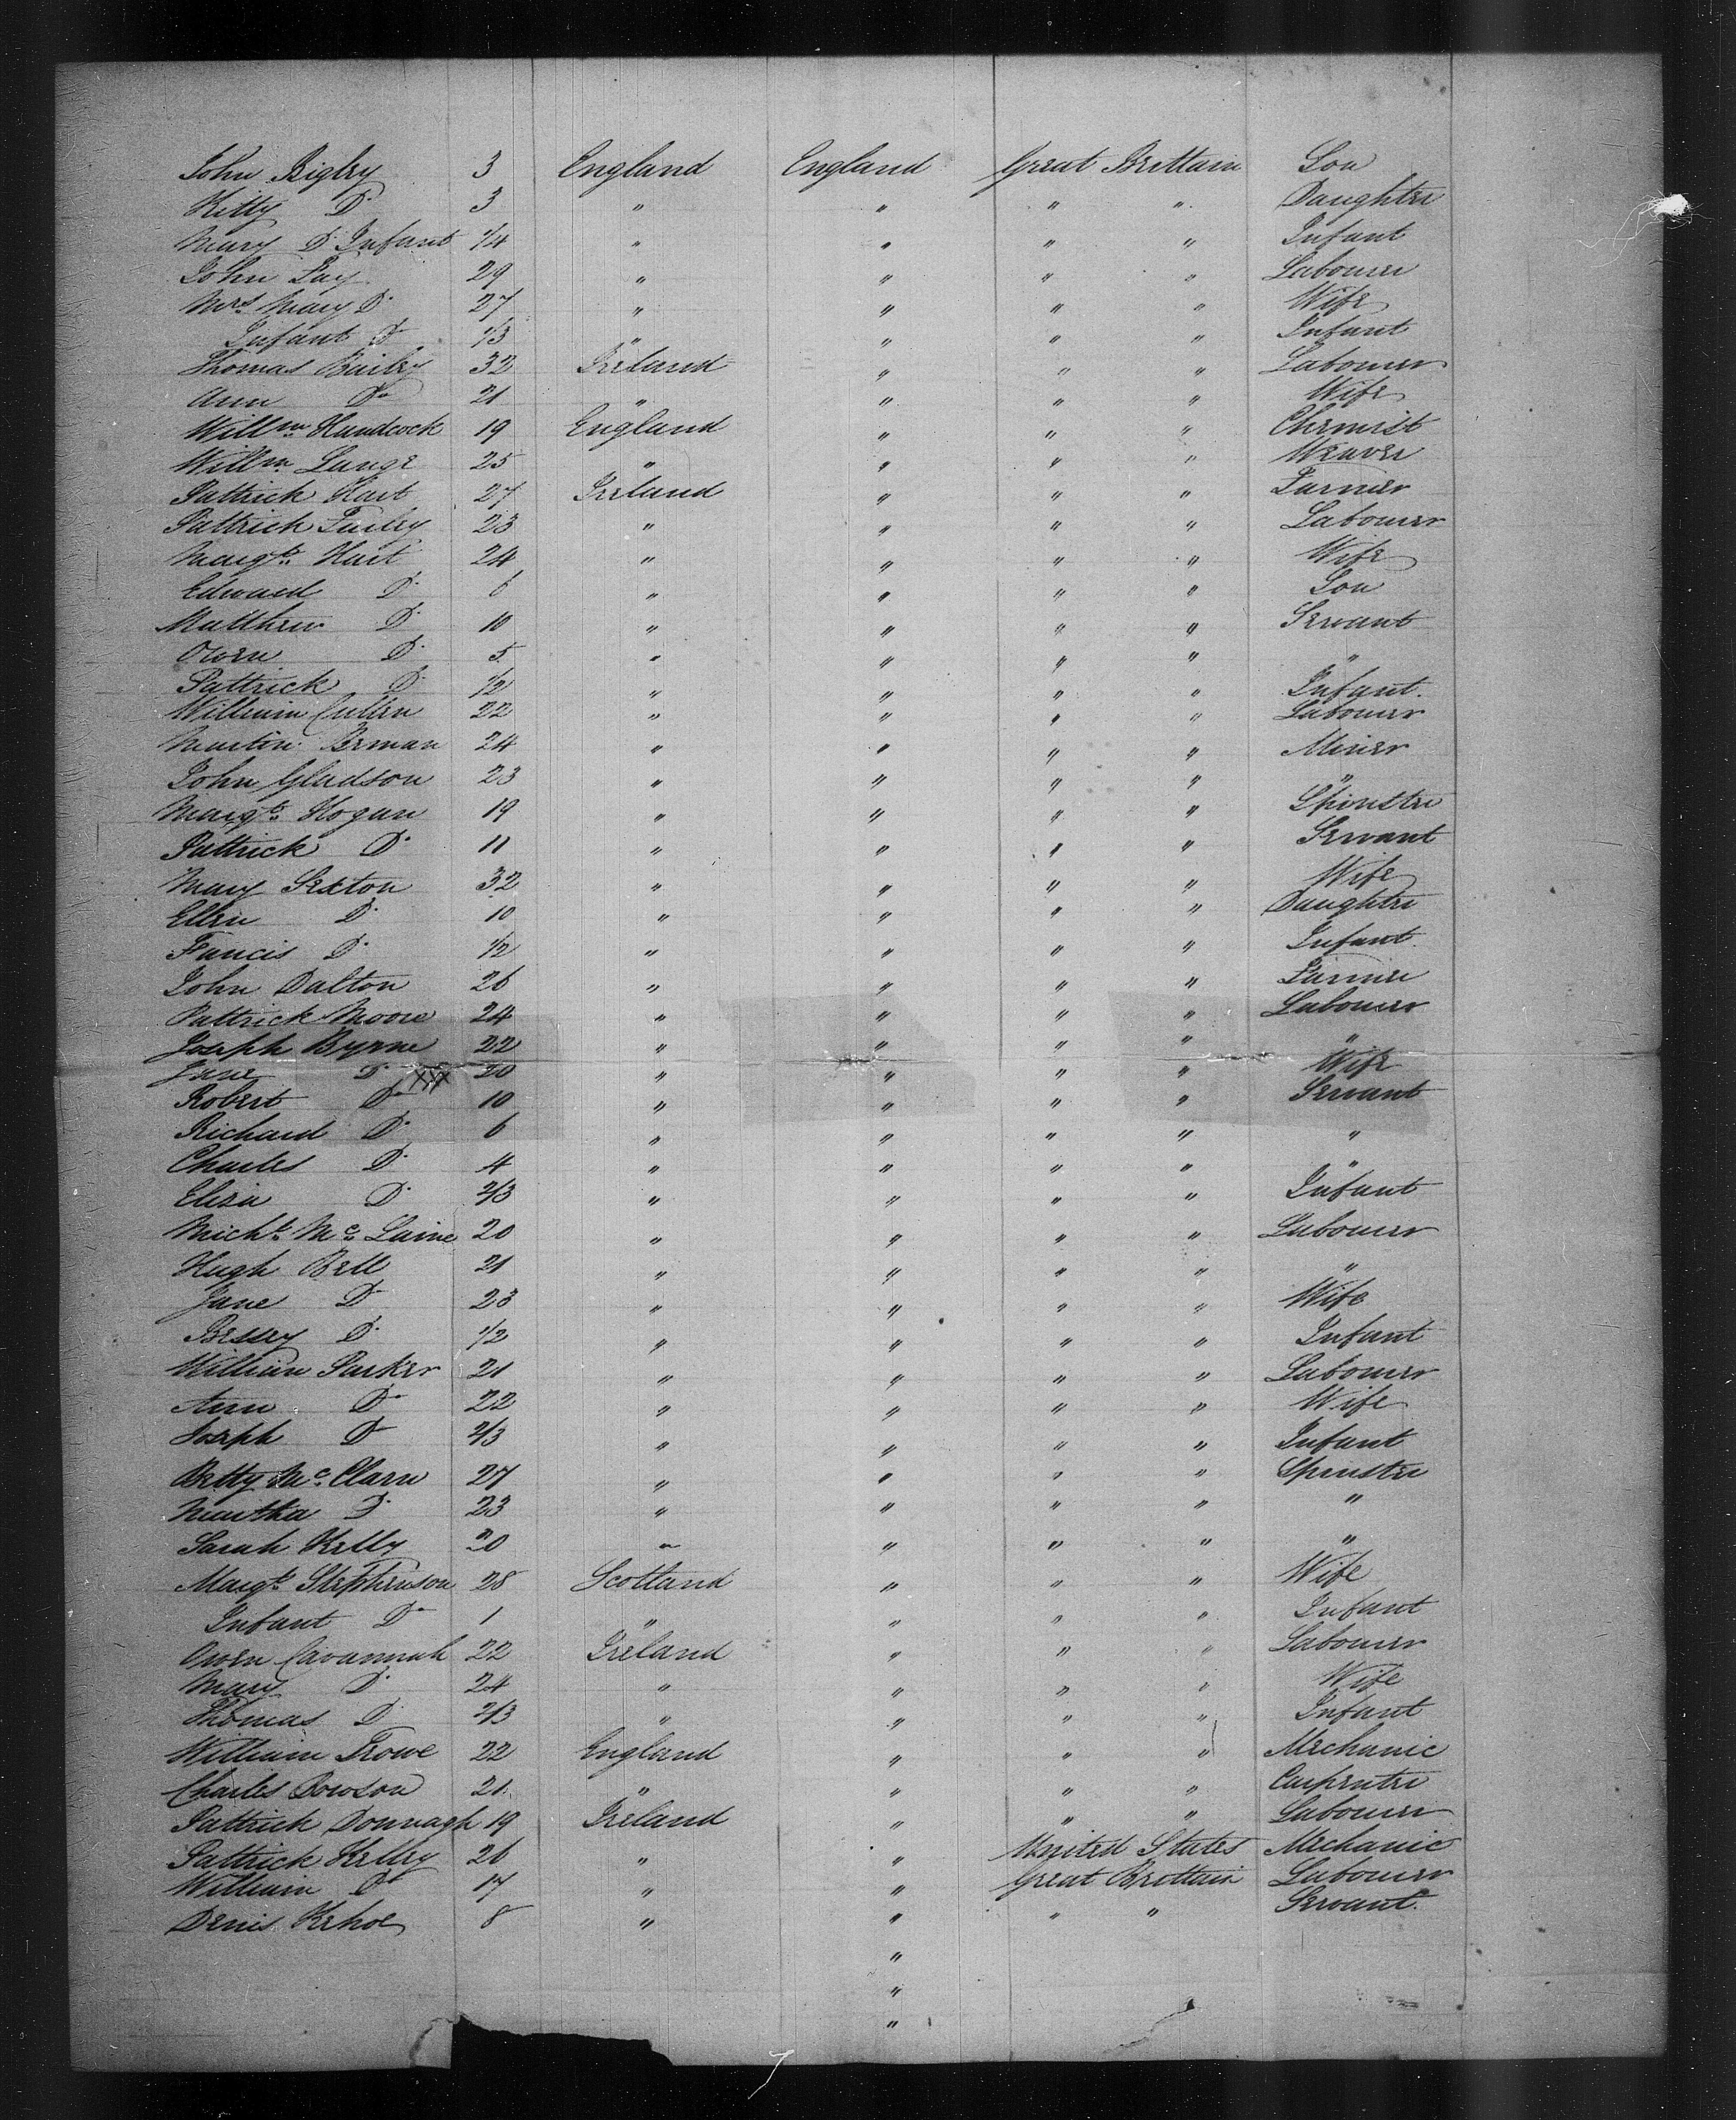 John Bigley 3 England England Great Brittain Son
Kitty Do 3 " " " " Daughter
Mary Do Infant 1/4 " " " " Infant
John Fay 29 " " " " Labourer
Mrs Mary Do 27 " " " " Wife
Infant Do 1/3 " " " " Infant
Thomas Bailey 32 Ireland " " " Labourer
Ann Do 21 " " " " Wife
Willm Handcock 19 England " " " Chemist
Willm Lange 25 " " " " Weaver
Pattrick Hart 27 Ireland " " " Farmer
Pattrick Farley 23 " " " " Labourer
Margt Hart 24 " " " " Wife
Edward Do 6 " " " " Son
Matthew Do 10 " " " " Servant
Owen Do 5 " " " " "
Pattrick Do 1/2 " " " " Infant.
William Cullen 22 " " " " Labourer
Martin 24 " " " " Miner
John Gladson 23 " " " " "
Margt Hogan 19 " " " " Spinster
Pattrick Do 11 " " " " Servant
Mary Sexton 32 " " " " Wife
Ellen Do 10 " " " " Daughter
Francis Do 1/2 " " " " Infant.
John Dalton 26 " " " " Farmer
Pattrick Moore 24 " " " " Labourer
Joseph Byrne 22 " " " " "
Jane Do 20 " " " " Wife
Robert Do XXX 10 " " " " Servant
Richard Do 6 " " " " "
Charles Do 4 " " " " "
Eliza Do 2/3 " " " " Infant
Michl Mc Laine 20 " " " " Labourer
Hugh Bell 21 " " " " "
Jane Do 23 " " " " Wife
Bessey Do 1/2 " " " " Infant
William Parker 21 " " " " Labourer
Ann Do 22 " " " " Wife
Joseph Do 2/3 " " " " Infant
Betty Mc Clarn 27 " " " " Spinster
Martha Do 23 " " " " "
Sarah Kelly 20 " " " " "
Margt Stephenson 28 Scotland " " " Wife
Infant Do 1 " " " " Infant
Owen Cavannah 22 Ireland " " " Labourer
Mary Do 24 " " " " Wife
Thomas Do 2/3 " " " " Infant
William Trowe 22 England " " " Mechanic
Charles Dowson 21 " " " " Carpenter
Pattrick Donnagh 19 Ireland " " " Labourer
Pattrick Kelley 26 " " United States Mechanic
William Do 17 " " Great Brittain Labourer
Denis Kehoe 8 " " " " Servant.
"
"
"
7